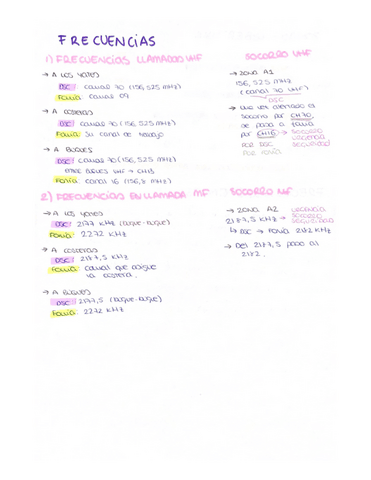 FRECUENCIAS
1) FRECUENCIAS LLAMADAS VHF
→ A LOS YATES
DSC: canal 70 (156,525 MHz)
Fonía: canal 09
→ A costeras
DSC: canal 70 (156,525 MHz)
Fonía: su canal de trabajo
→ A BUQUES
DSC: canal 70 (156,525 MHz)
entre buques VHF → CH13
Fonía: canal 16 (156,8 MHz)
SOCORRO VHF
→ ZONA A1
156,525 MHz
(canal 70 VHF)
DSC
→ Una vez alertado el
socorro por CH70,
se pasa a fonía
por CH16 → socorro
urgencia
seguridad
POR DSC
POR FONÍA
2) FRECUENCIAS EN LLAMADA MF
→ A los yates
DSC: 2177 KHz (buque-buque)
Fonía: 2272 KHz
→ A costeras
DSC: 2177,5 KHz
Fonía: canal que asigne
la costera.
→ A BUQUES
DSC: 2177,5 (buque-buque)
Fonía: 2272 KHz
SOCORRO MF
→ ZONA A2
2187,5 KHz → urgencia
socorro
seguridad
↳ DSC → Fonía 2182 KHz
→ Del 2187,5 paso al
2182.